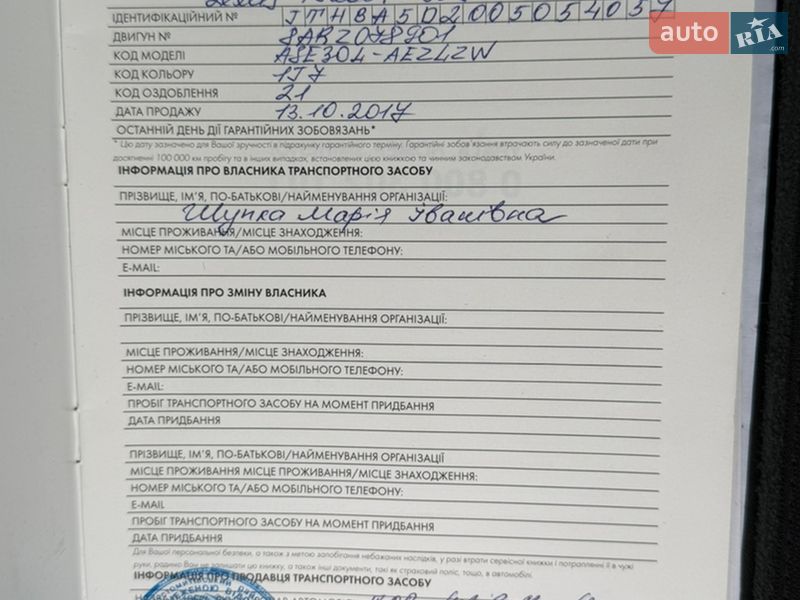 ІДЕНТИФІКАЦІЙНИЙ № JTHBA5D2005054057
ДВИГУН № 8ARZ078901
КОД МОДЕЛІ ASE30L-AEZLZW
КОД КОЛЬОРУ 1J7
КОД ОЗДОБЛЕННЯ 21
ДАТА ПРОДАЖУ 13.10.2017
ОСТАННІЙ ДЕНЬ ДІЇ ГАРАНТІЙНИХ ЗОБОВЯЗАНЬ*
* Цю дату зазначено для Вашої зручності в підрахунку гарантійного терміну. Гарантійні зобов'язання втрачають силу до зазначеної дати при
досягненні 100 000 км пробігу та в інших випадках, встановлених цією книжкою та чинним законодавством України.
ІНФОРМАЦІЯ ПРО ВЛАСНИКА ТРАНСПОРТНОГО ЗАСОБУ
ПРІЗВИЩЕ, ІМ'Я, ПО-БАТЬКОВІ/НАЙМЕНУВАННЯ ОРГАНІЗАЦІЇ:
Шупка Марія Іванівна
МІСЦЕ ПРОЖИВАННЯ/МІСЦЕ ЗНАХОДЖЕННЯ:
НОМЕР МІСЬКОГО ТА/АБО МОБІЛЬНОГО ТЕЛЕФОНУ:
E-MAIL:
ІНФОРМАЦІЯ ПРО ЗМІНУ ВЛАСНИКА
ПРІЗВИЩЕ, ІМ'Я, ПО-БАТЬКОВІ/НАЙМЕНУВАННЯ ОРГАНІЗАЦІЇ:
МІСЦЕ ПРОЖИВАННЯ/МІСЦЕ ЗНАХОДЖЕННЯ:
НОМЕР МІСЬКОГО ТА/АБО МОБІЛЬНОГО ТЕЛЕФОНУ:
E-MAIL:
ПРОБІГ ТРАНСПОРТНОГО ЗАСОБУ НА МОМЕНТ ПРИДБАННЯ
ДАТА ПРИДБАННЯ
ПРІЗВИЩЕ, ІМ'Я, ПО-БАТЬКОВІ/НАЙМЕНУВАННЯ ОРГАНІЗАЦІЇ
МІСЦЕ ПРОЖИВАННЯ МІСЦЕ ПРОЖИВАННЯ/МІСЦЕ ЗНАХОДЖЕННЯ:
НОМЕР МІСЬКОГО ТА/АБО МОБІЛЬНОГО ТЕЛЕФОНУ:
E-MAIL
ПРОБІГ ТРАНСПОРТНОГО ЗАСОБУ НА МОМЕНТ ПРИДБАННЯ
ДАТА ПРИДБАННЯ
Для Вашої персональної безпеки, а також з метою запобігання небажаних наслідків, у разі втрати сервісної книжки і потраплянні її в чужі
руки, радимо Вам не залишати цю книжку, а також інші документи, такі як страховий поліс, тощо, в автомобілі.
ІНФОРМАЦІЯ ПРО ПРОДАВЦЯ ТРАНСПОРТНОГО ЗАСОБУ
auto RIA .com